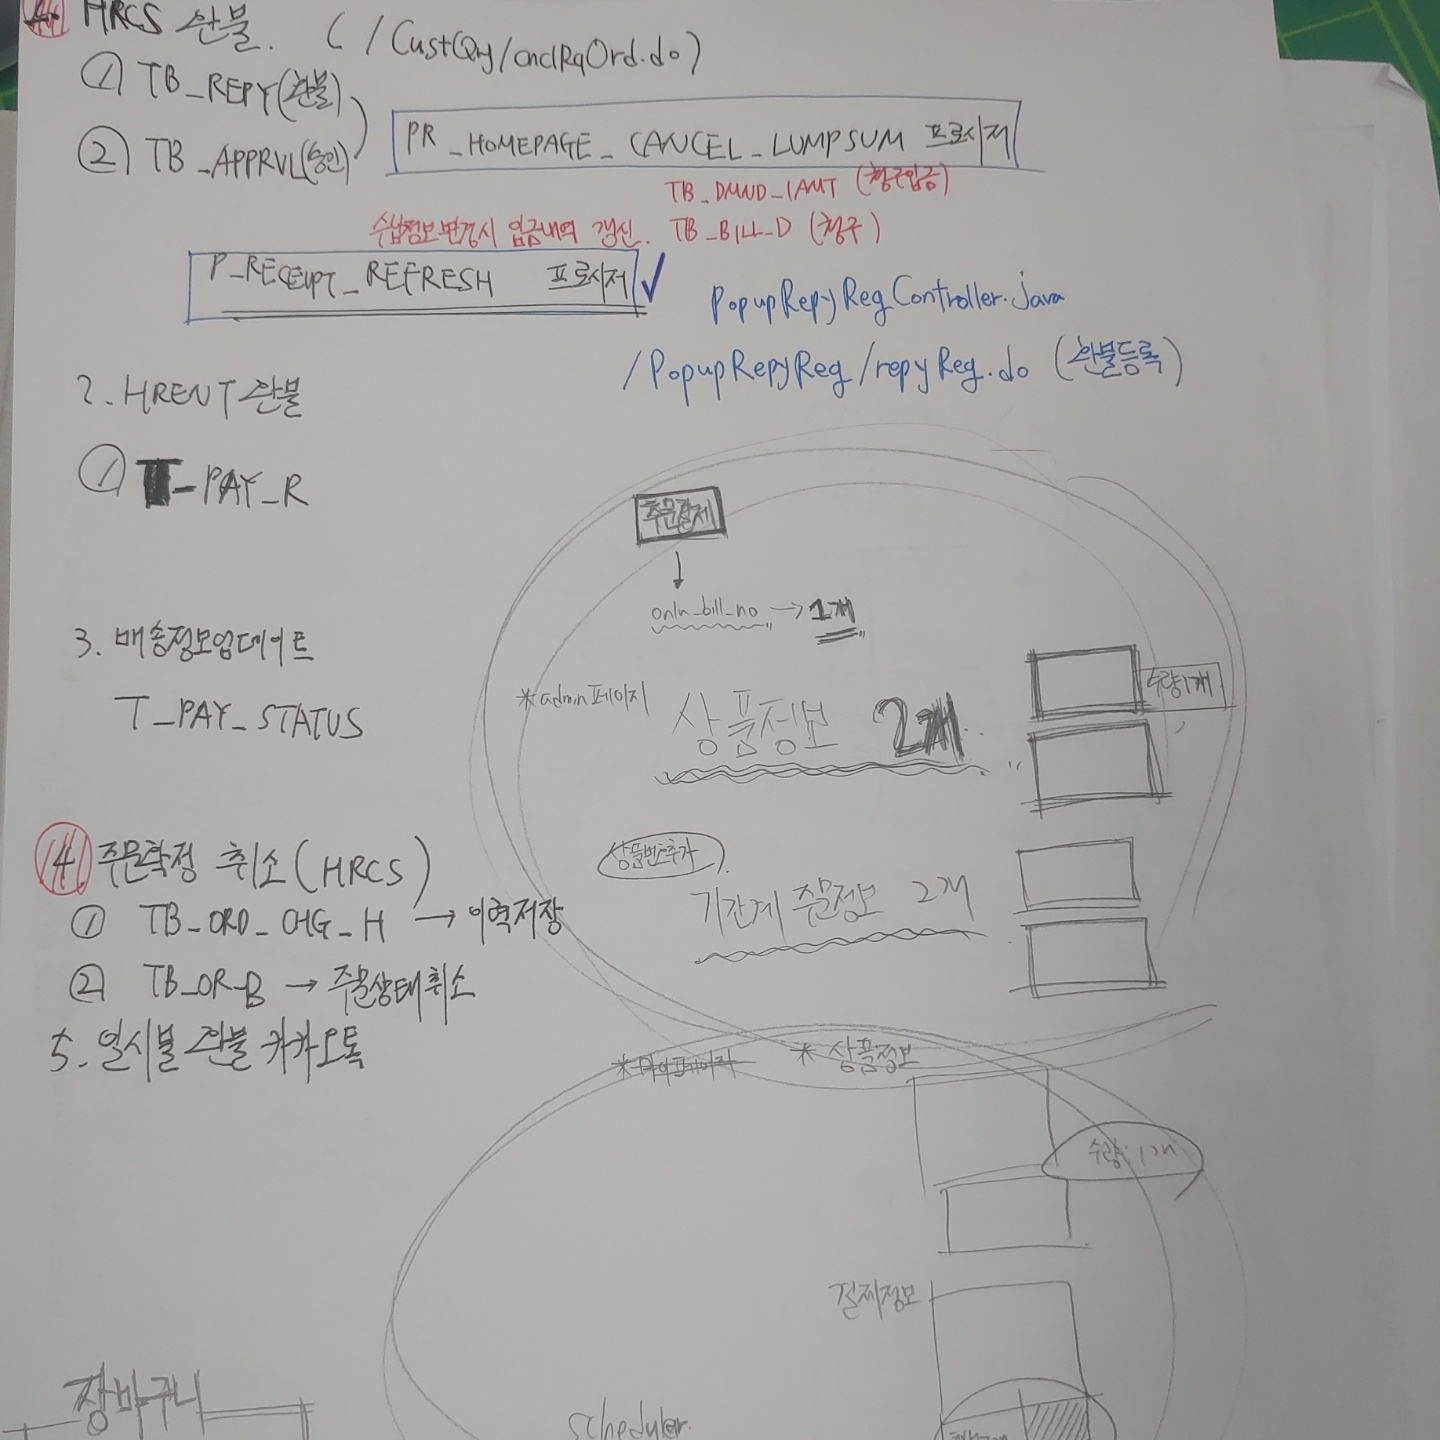 HRCS 환불. ( /CustQry/cnclRqOrd.do)
① TB_REPY(환불)
② TB_APPRVL(승인)
PR_HOMEPAGE_CANCEL_LUMPSUM 프로시저
TB_DMND_IAMT (청구입금)
수납정보변경시 입금내역 갱신. TB_BILL_D (청구)
P_RECEIPT_REFRESH 프로시저
PopupRepyRegController.java
/PopupRepyReg/repyReg.do (환불등록)
2. HRENT 환불
① T_PAY_R
주문결제
onln_bill_no → 1개
3. 배송정보업데이트
T_PAY_STATUS
*admin페이지
상품정보 2개
수량1개
4. 주문확정 취소(HRCS)
① TB_ORD_CHG_H → 이력저장
② TB_OR_B → 주문상태취소
5. 일시불 환불 카카오톡
상품번호추가
기간계 주문정보 2개
*마이페이지
* 상품정보
수량:1개
결제정보
장바구니
scheduler.